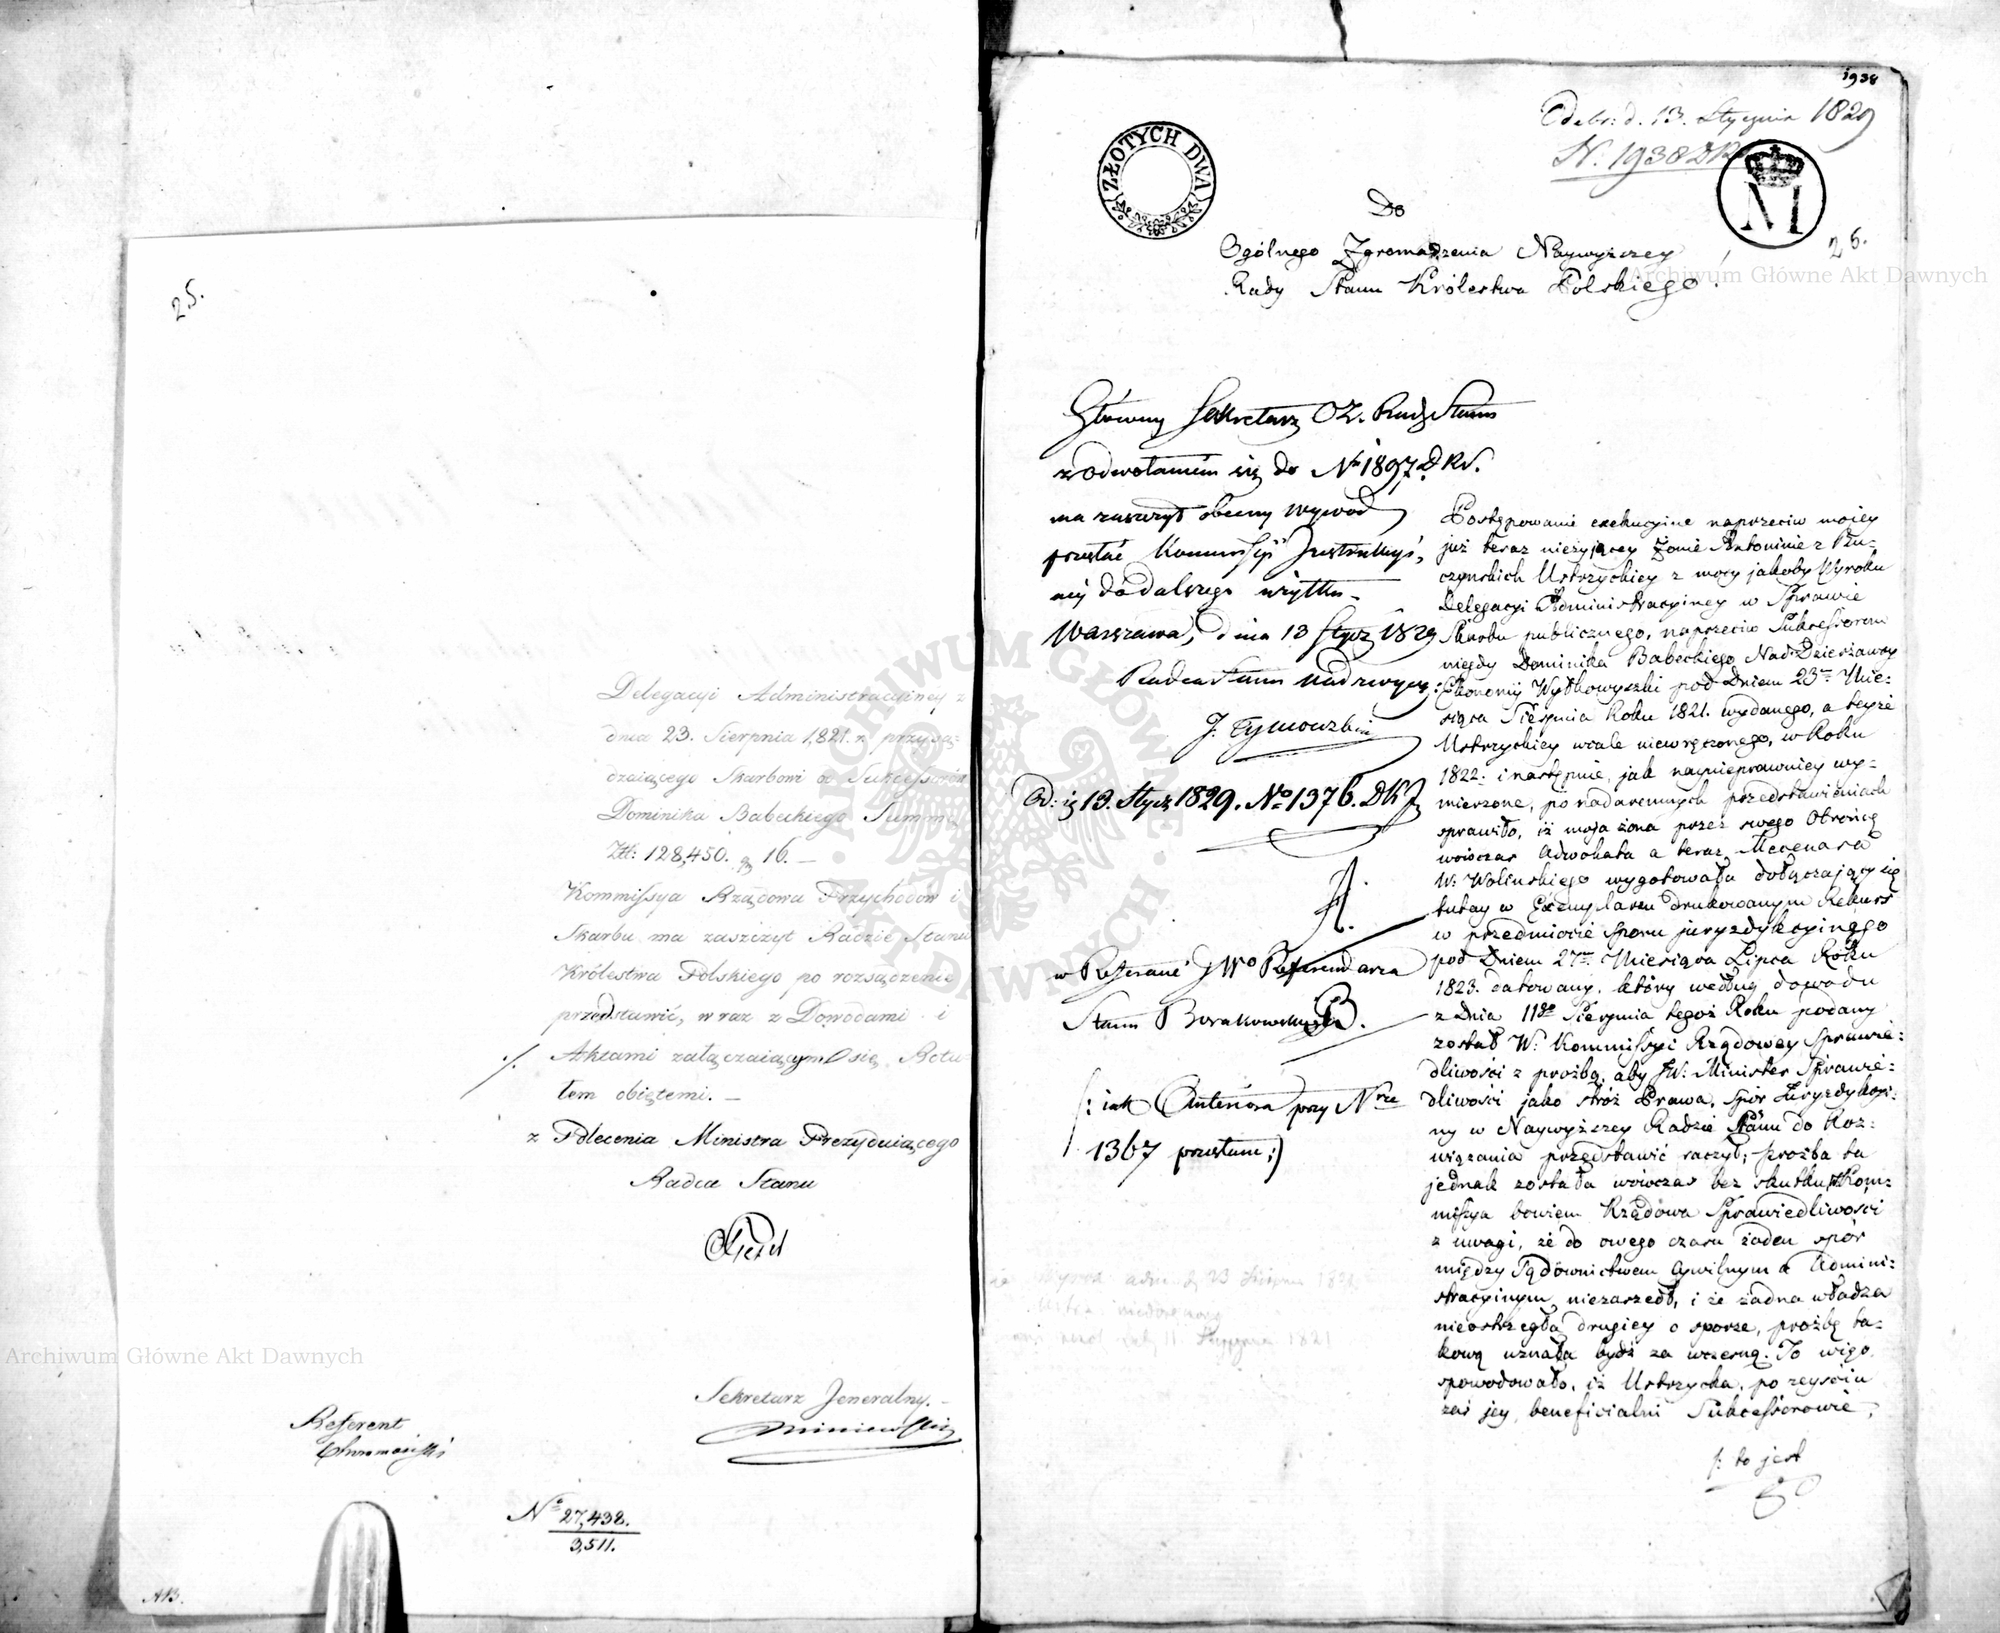 25.
Delegacyi Administracyiney z
dnia 23. Sierpnia 1,821. r. przysą-
dzaiącego Skarbowi od Sukcessorów
Dominika Babeckiego Summę
Złt: 128,450. gr 16. —
Kommissya Rządowa Przychodów i
Skarbu ma zaszczyt Radzie Stanu
Królestwa Polskiego po rozsądzenie
przedstawić, wraz z Dowodami i
./. Aktami załączaiącymi się Rotu-
łem obiętemi. —
z Polecenia Ministra Prezyduiącego
Radca Stanu
Sekretarz Jeneralny.
Referent
No 27,438.
3,511.
1938
Odebr: d. 13. Stycznia 1829
N. 1938 DR
ZŁOTYCH DWA
M
26.
Do
Ogólnego Zgromadzenia Naywyższey
Rady Stanu Królestwa Polskiego!
Główny Sekretarz OZ. Rady Stanu
z odwołaniem się do No 1897. DRS.
ma zaszczyt obecny wywód
przesłać Kommissyi Instrukcyi-
ney do dalszego użytku.
Warszawa, dnia 13 Stycz 1829
Radca Stanu Nadzwycz:
J. Tymowski
Od: ię 13. Stycz 1829. No 1376. DKJ
w Referanc JWo Referendarza
Stanu Borakowskiego.
/: iak Anteriora przy Nrze
1367 przesłane :/
Postępowanie exekucyine naprzeciw moiey
już teraz nieżyjącey Żonie Antoninie z Ru-
czynskich Ustrzyckiey z mocy jakoby Wyroku
Delegacyi Administracyiney w Sprawie
Skarbu publicznego, naprzeciw Sukcessorom
niegdy Dominika Babeckiego Nad-Dzierżawcy
Ekonomij Wyłkowyszki pod Dniem 23m Mie-
siąca Sierpnia Roku 1821. wydanego, a teyże
Ustrzyckiey wcale niewręczonego, w Roku
1822. i następnie, jak naynieprawniey wy-
mierzone, po nadaremnych przedstawieniach
sprawiło, iż moja żona przez swego Obrońcę
wówczas Adwokata a teraz Mecenasa
W. Wolinskiego wygotowała dołączający się
tutay w Exemplarzu drukowanym Rekurs
w przedmiocie sporu juryzdykcyinego
pod Dniem 27m Miesiąca Lipca Roku
1823. datowany, który według dowodu
z Dnia 11go Sierpnia tegoż Roku podany
został W. Kommissyi Rządowey Sprawie-
dliwości z proźbą, aby JW. Minister Sprawie-
dliwości jako stróż Prawa, spór Juryzdykcyi-
ny w Naywyższey Radzie Stanu do Roz-
wiązania przedstawić raczył; proźba ta
jednak została wówczas bez skutku, Kom-
missya bowiem Rządowa Sprawiedliwości
z uwagi, że do owego czasu żaden spór
między Sądownictwem cywilnym a Admini-
stracyinym niezaszedł, i że żadna władza
nieostrzegła drugiey o sporze, proźbę ta-
kową uznała bydź za wczesną. To więc
spowodowało, iż Ustrzycka, po zeyściu
zaś jey, beneficialni Sukcessorowie,
/: to jest
Archiwum Główne Akt Dawnych
Archiwum Główne Akt Dawnych
ARCHIWUM GŁÓWNE AKT DAWNYCH